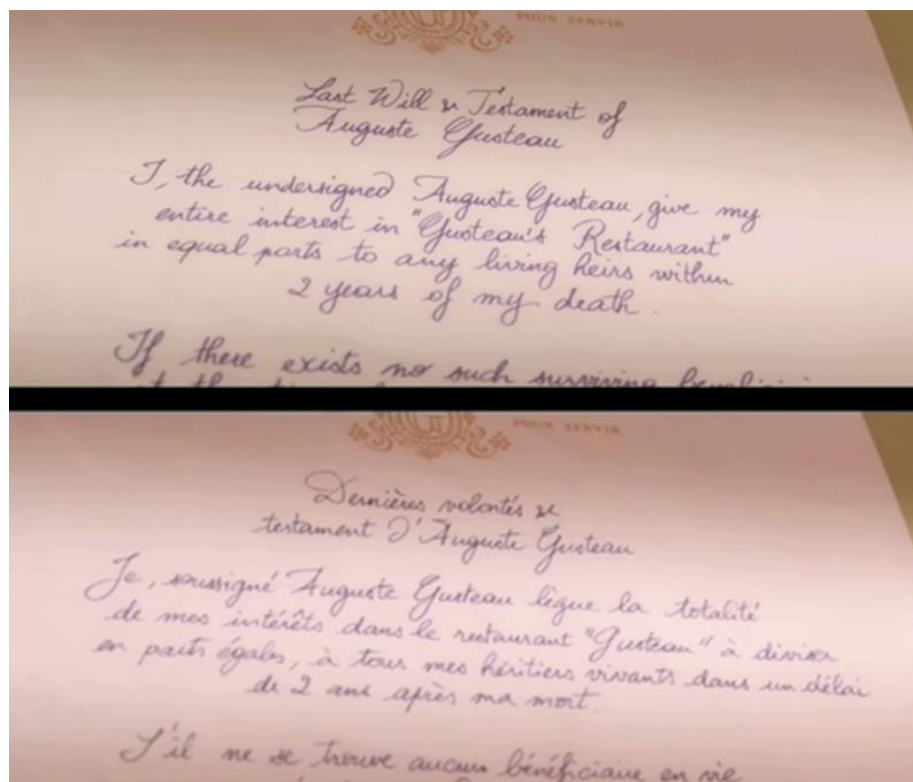 POUR SERVIR
Last Will & Testament of
Auguste Gusteau
I, the undersigned Auguste Gusteau, give my
entire interest in "Gusteau's Restaurant"
in equal parts to any living heirs within
2 years of my death.
If there exists no such surviving
POUR SERVIR
Dernières volontés &
testament d'Auguste Gusteau
Je, soussigné Auguste Gusteau lègue la totalité
de mes intérêts dans le restaurant "Gusteau" à diviser
en parts égales, à tous mes héritiers vivants dans un délai
de 2 ans après ma mort.
S'il ne se trouve aucun bénéficiaire en vie